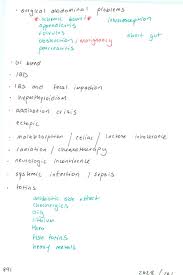 · surgical abdominal problems
* ischemic bowel * intussusception
appendicitis
volvulus about gut
obstruction, malignancy
pancreatitis
· GI bleed
· IBD
· IBS and fecal impaction
· hyperthyroidism
· adrenal crisis
· ectopic
· malabsorption / celiac / lactose intolerance
· radiation / chemotherapy
· neurologic incontinence
· systemic infection / sepsis
· toxins
antibiotic side effect
cholinergics
dig
lithium
iron
fish toxins
heavy metals